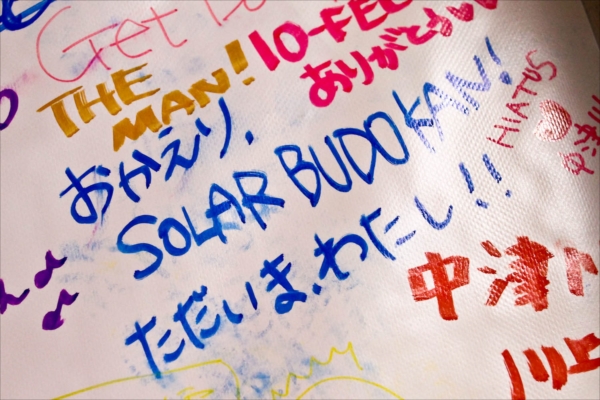 Get
THE
MAN!
10-FEE
ありがとう
おかえり、
SOLAR BUDOKAN!
ただいま、わたし!!
HIATUS
中津川
中津川
川上